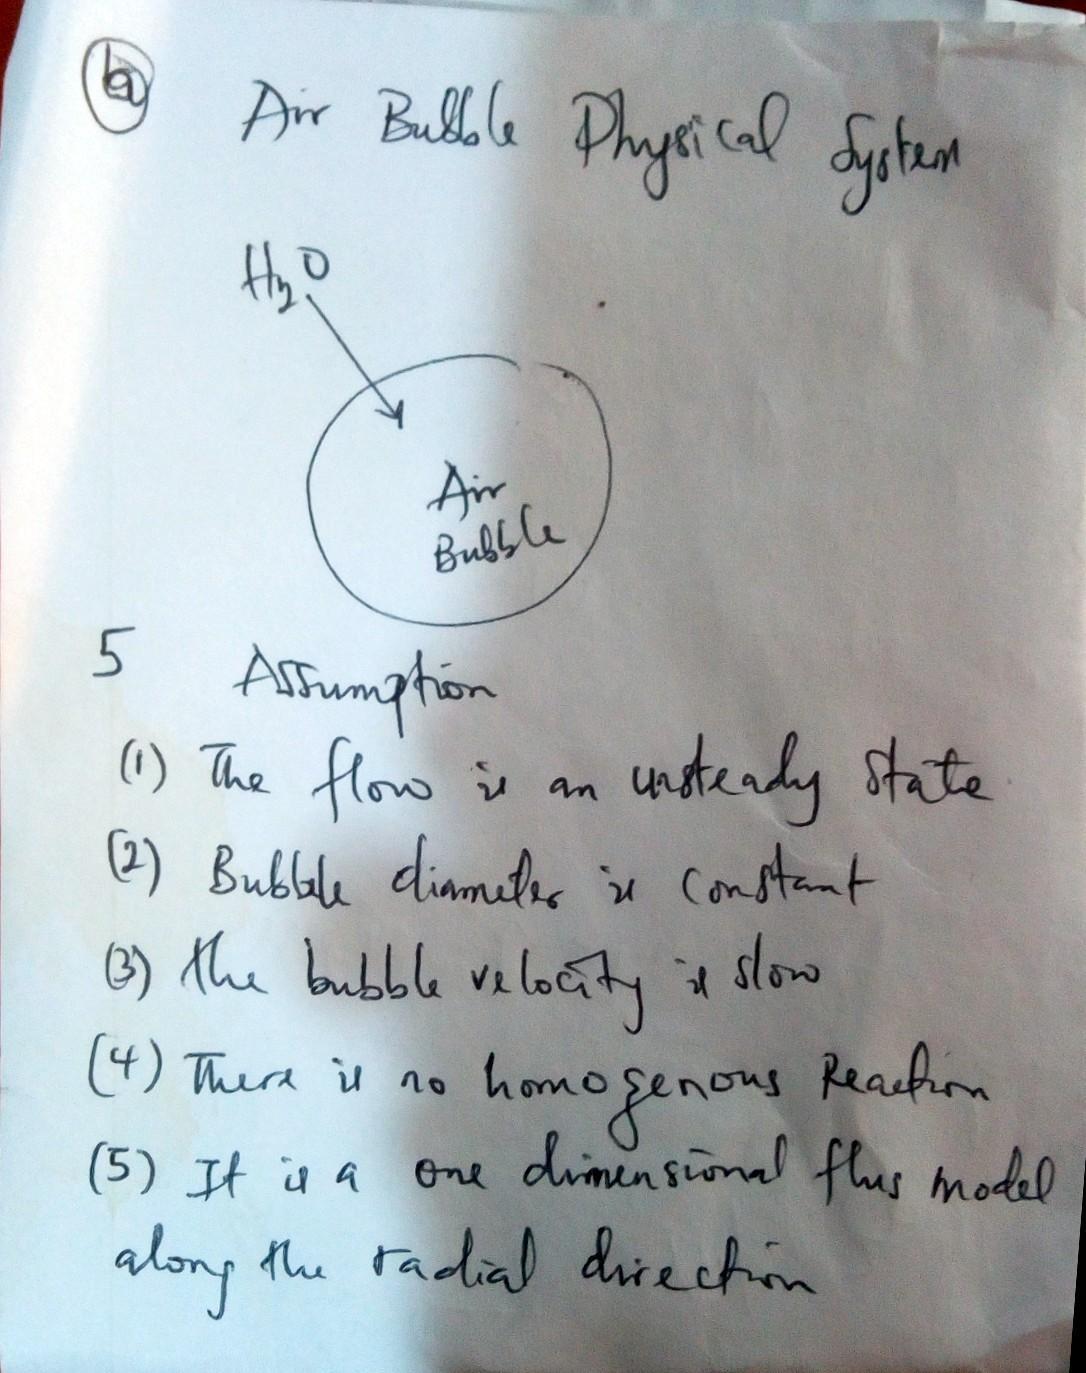 (b)
Air Bubble Physical System
H₂O
Air
Bubble
5 Assumption
(1) The flow is an unsteady state
(2) Bubble diameter is constant
(3) the bubble velocity is slow
(4) There is no homogenous Reaction
(5) It is a one dimensional flus model
along the radial direction